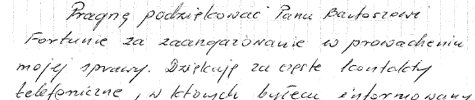 Pragnę podziękować Panu Bartoszowi
Fortunie za zaangażowanie w prowadzeniu
mojej sprawy. Dziękuję za częste kontakty
telefoniczne, w których byłem informowany